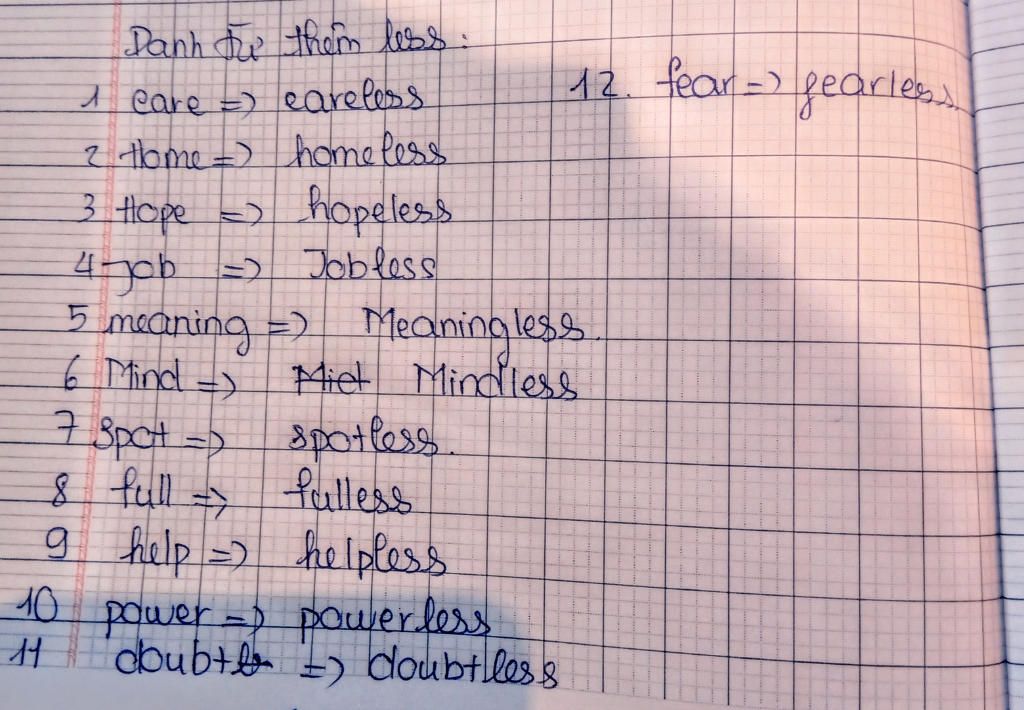 Danh từ thêm less:
1 care => careless
2 Home => homeless
3 Hope => hopeless
4 job => Jobless
5 meaning => Meaningless.
6 Mind => Mindless
7 spot => spotless.
8 full => fulless
9 help => helpless
10 power => powerless
11 doubt => doubtless
12. fear => fearless